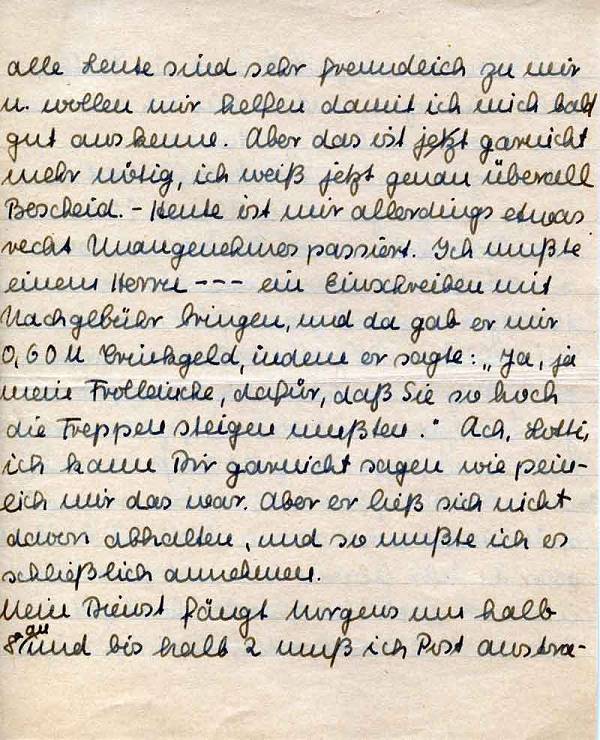 alle Leute sind sehr freundlich zu mir
u. wollen mir helfen damit ich mich bald
gut auskenne. Aber das ist jetzt garnicht
mehr nötig, ich weiß jetzt genau überall
Bescheid. - Heute ist mir allerdings etwas
recht Unangenehmes passiert. Ich mußte
einem Herrn --- ein Einschreiben mit
Nachgebühr bringen, und da gab er mir
0,60 M Trinkgeld, indem er sagte: „Ja, ja
mein Frolleinche, dafür, daß Sie so hoch
die Treppen steigen mußten." Ach, Lotti,
ich kann Dir garnicht sagen wie pein-
lich mir das war. Aber er ließ sich nicht
davon abhalten, und so mußte ich es
schließlich annehmen.
Mein Dienst fängt Morgens um halb
8 an und bis halb 2 muß ich Post austra-